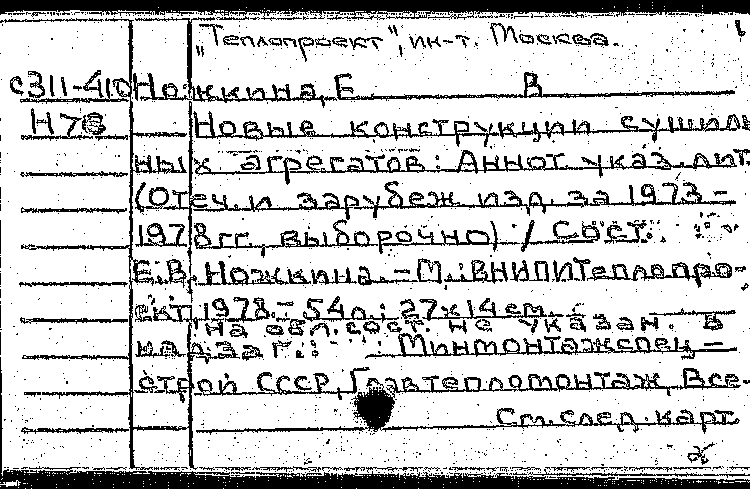 "Теплопроект", ин-т. Москва.
С311-410 Ножкина, Е. В
Н78 Новые конструкции сушиль
ных агрегатов: Аннот. указ. лит.
(Отеч. и зарубеж. изд. за 1973-
1978 гг., выборочно) / Сост.
Е.В. Ножкина. - М.: ВНИПИТеплопро-
ект, 1978. - 54 л.; 27х14 см.
На обл. сост. не указан. В
надзаг.: Минмонтажспец-
строй СССР, Главтепломонтаж, Все-
См. след. карт.